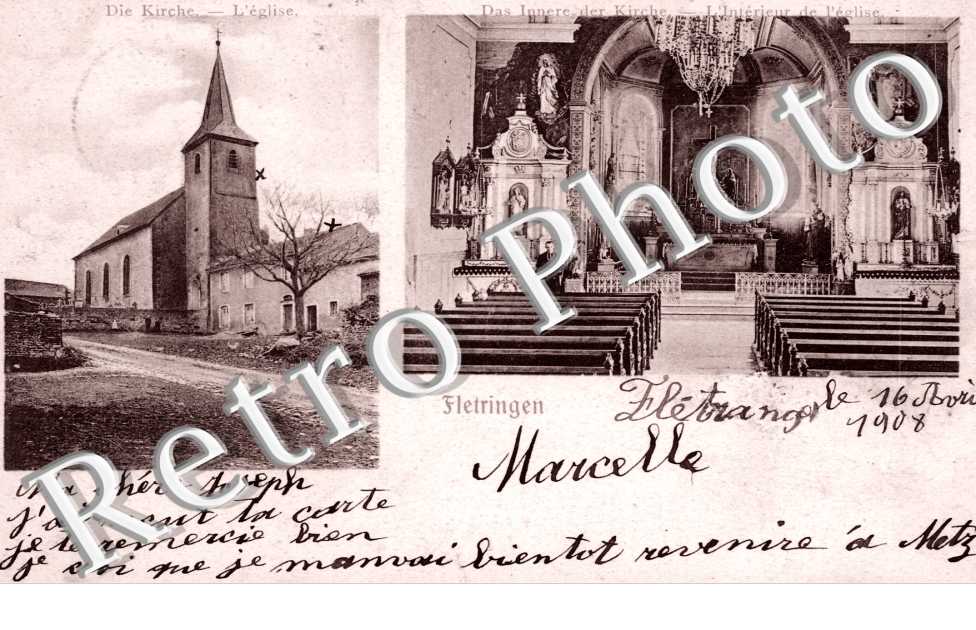 Die Kirche. — L'église.
Das Innere der Kirche. — L'Intérieur de l'église.
Retro Photo
Fletringen
Flétrange le 16 Avri
1908
Marcelle
Joseph
ta carte
je te remercie bien
je que je manvai bientot revenire á Metz